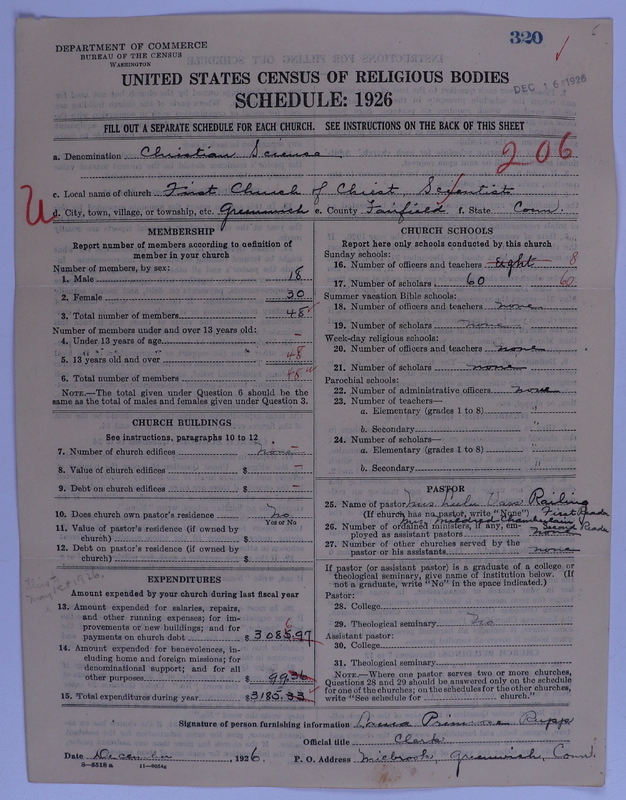 320
DEPARTMENT OF COMMERCE
BUREAU OF THE CENSUS
WASHINGTON
UNITED STATES CENSUS OF RELIGIOUS BODIES
SCHEDULE: 1926
DEC 16 1926
FILL OUT A SEPARATE SCHEDULE FOR EACH CHURCH. SEE INSTRUCTIONS ON THE BACK OF THIS SHEET
a. Denomination Christian Science
206
c. Local name of church First Church of Christ, Scientist
U
d. City, town, village, or township, etc. Greenwich e. County Fairfield f. State Conn.
MEMBERSHIP
Report number of members according to definition of member in your church
Number of members, by sex:
1. Male 18
2. Female 30
3. Total number of members 48
Number of members under and over 13 years old:
4. Under 13 years of age –
5. 13 years old and over 48
6. Total number of members 48
NOTE.—The total given under Question 6 should be the same as the total of males and females given under Question 3.
CHURCH BUILDINGS
See instructions, paragraphs 10 to 12
7. Number of church edifices None –
8. Value of church edifices $ –
9. Debt on church edifices $ –
10. Does church own pastor's residence No
Yes or No
11. Value of pastor's residence (if owned by church) $
12. Debt on pastor's residence (if owned by church) $
EXPENDITURES
Amount expended by your church during last fiscal year
13. Amount expended for salaries, repairs, and other running expenses; for improvements or new buildings; and for payments on church debt $ 3085.97 6
14. Amount expended for benevolences, including home and foreign missions; for denominational support; and for all other purposes $ 99.36
15. Total expenditures during year $ 3185.33
CHURCH SCHOOLS
Report here only schools conducted by this church
Sunday schools:
16. Number of officers and teachers eight 8
17. Number of scholars 60 60
Summer vacation Bible schools:
18. Number of officers and teachers none
19. Number of scholars none
Week-day religious schools:
20. Number of officers and teachers none
21. Number of scholars none
Parochial schools:
22. Number of administrative officers none
23. Number of teachers—
a. Elementary (grades 1 to 8) "
b. Secondary "
24. Number of scholars—
a. Elementary (grades 1 to 8) "
b. Secondary "
PASTOR
25. Name of pastor Mrs Lulu Railing
(If church has no pastor, write "None") First Reader
Mrs Mildred Chamberlain
26. Number of ordained ministers, if any, employed as assistant pastors none Second Reader
27. Number of other churches served by the pastor or his assistants none
If pastor (or assistant pastor) is a graduate of a college or theological seminary, give name of institution below. (If not a graduate, write "No" in the space indicated.)
Pastor:
28. College
29. Theological seminary No
Assistant pastor:
30. College
31. Theological seminary
NOTE.—Where one pastor serves two or more churches, Questions 28 and 29 should be answered only on the schedule for one of the churches; on the schedules for the other churches, write "See schedule for church."
Signature of person furnishing information
Official title Clerk
Date December, 1926. P. O. Address Greenwich, Conn.
8—5518 a